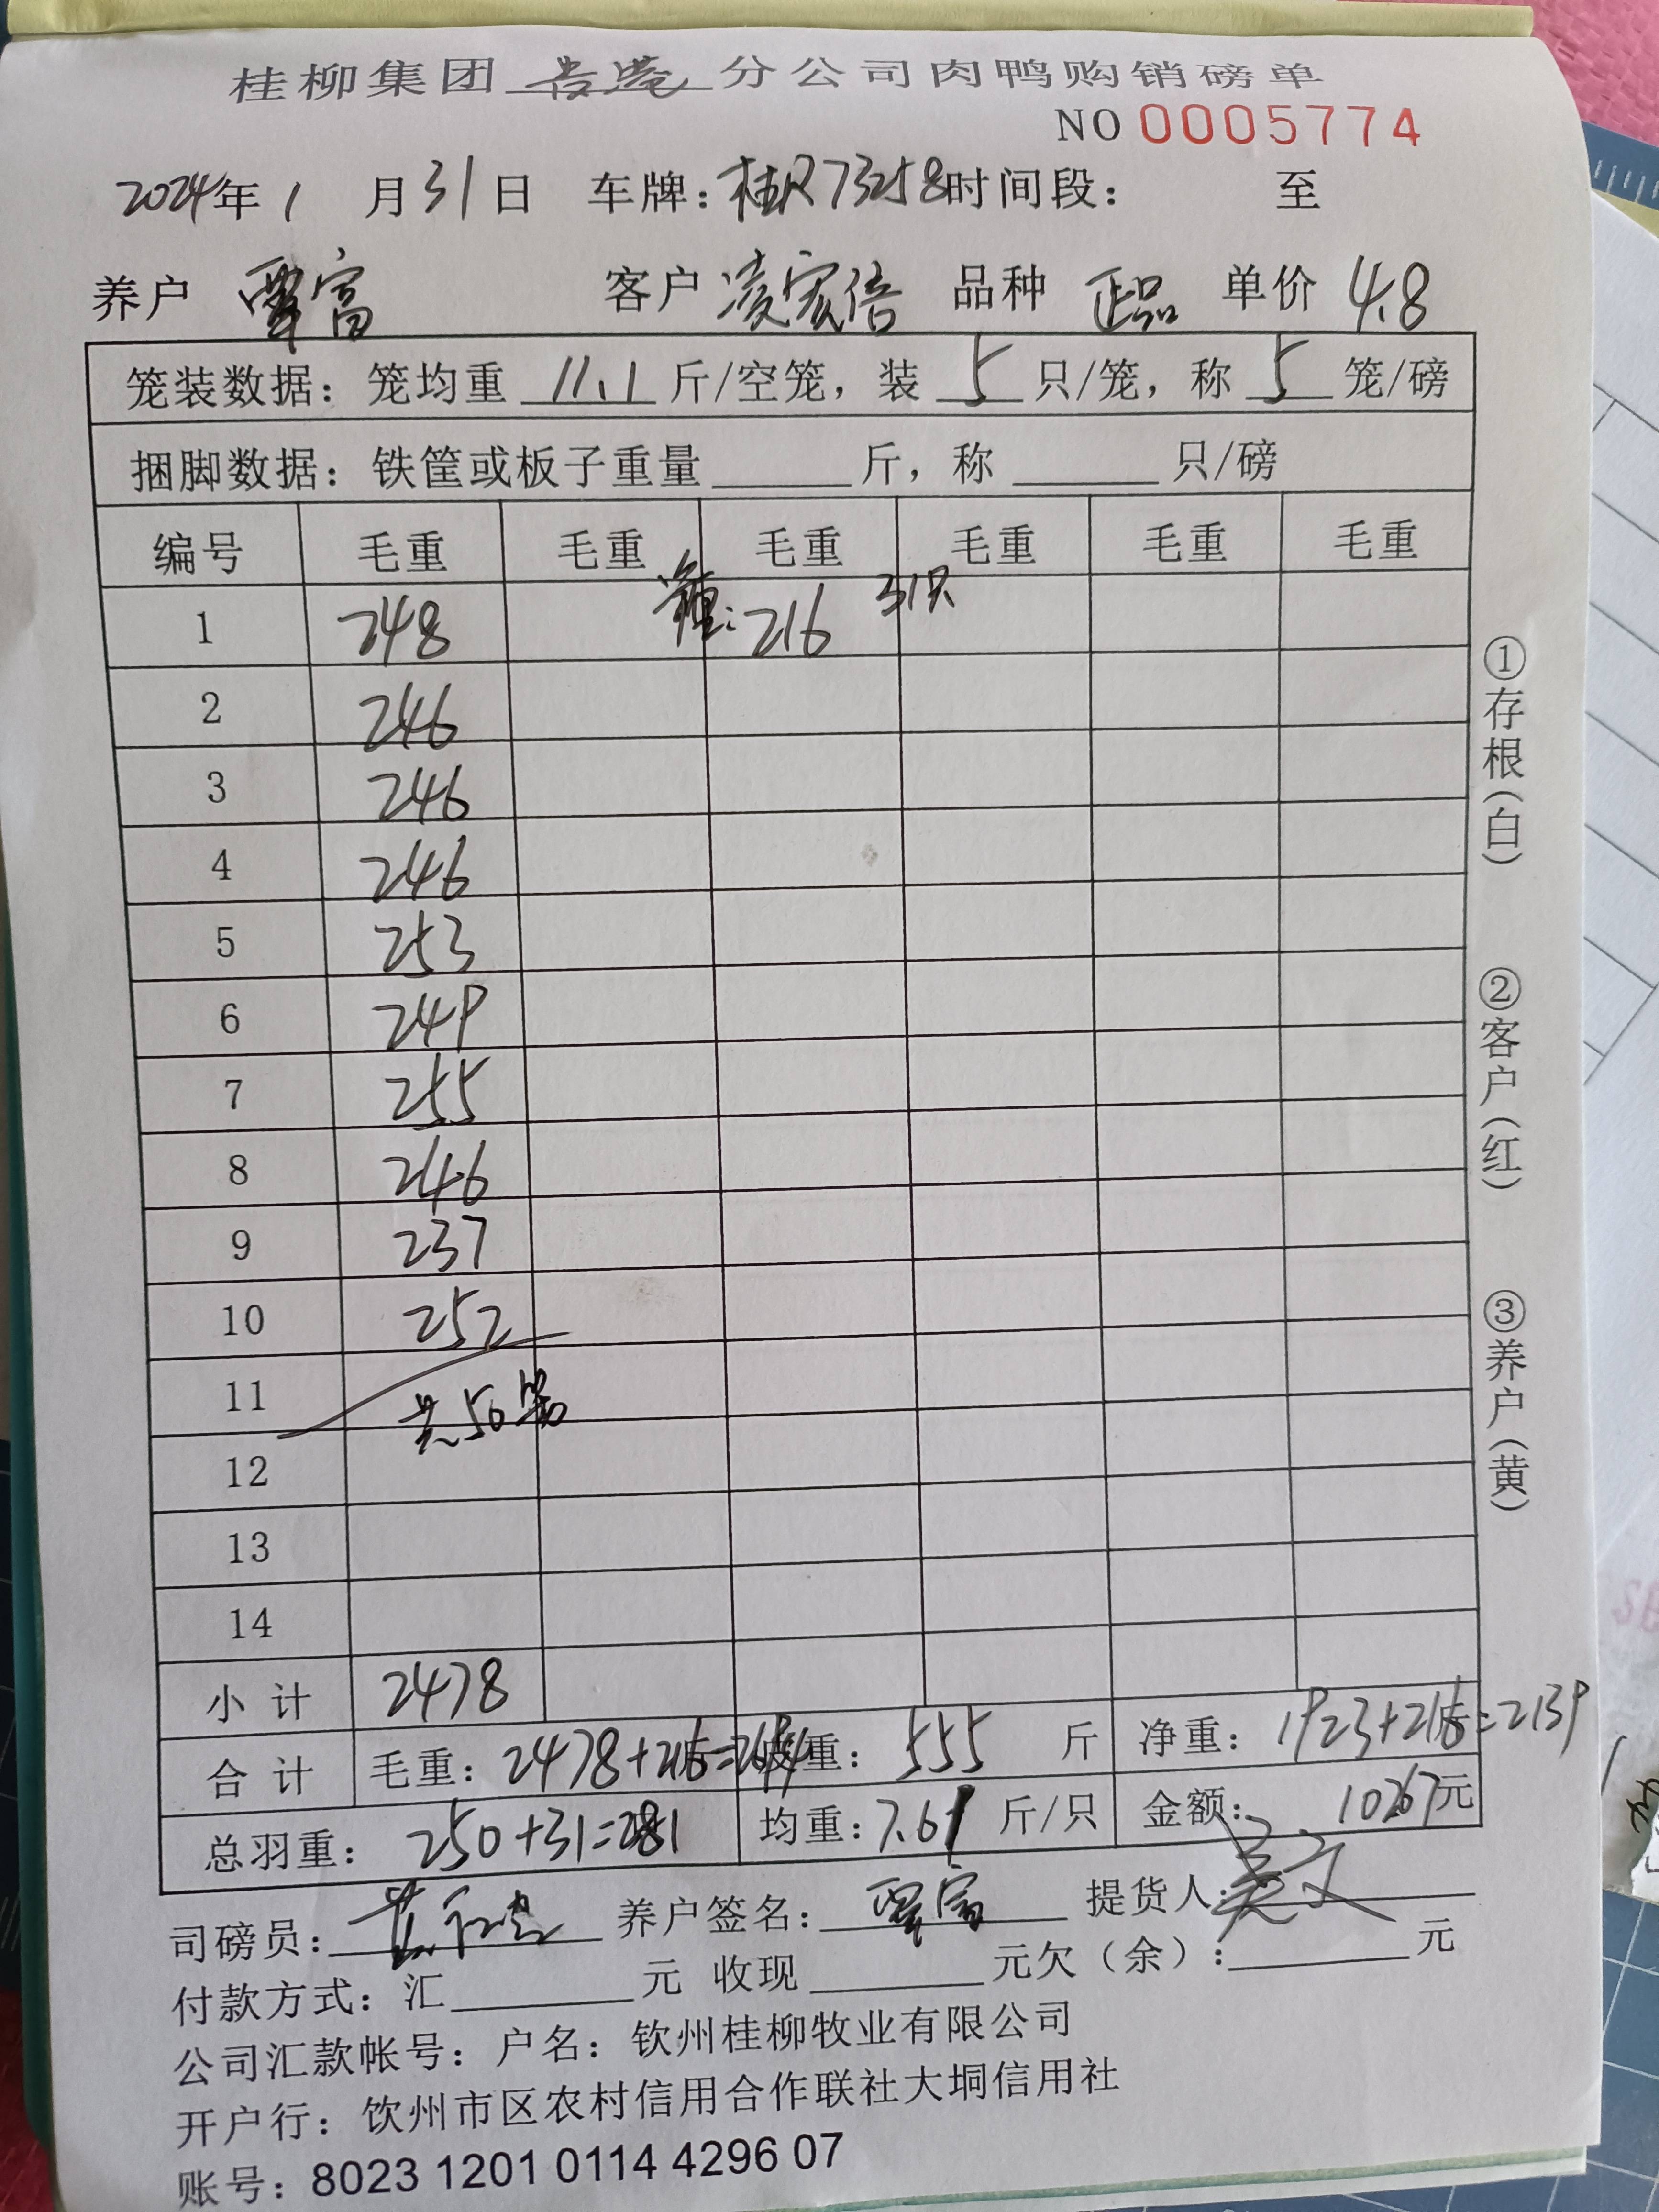 桂柳集团 贵港 分公司肉鸭购销磅单
NO 0005774
2024年 1 月 31 日 车牌: 桂R73258 时间段: 至
养户 覃富 客户 凌宏倍 品种 正品 单价 4.8
笼装数据: 笼均重 11.1 斤/空笼, 装 5 只/笼, 称 5 笼/磅
捆脚数据: 铁筐或板子重量 斤, 称 只/磅
编号 毛重 毛重 毛重 毛重 毛重 毛重
1 248 重: 216 31只
2 246
3 246
4 246
5 253
6 249
7 255
8 246
9 237
10 252
11 共50笼
12
13
14
小计 2478
合计 毛重: 2478+216=2694 皮重: 555 斤 净重: 1923+216=2139
总羽重: 250+31=281 均重: 7.61 斤/只 金额: 10267元
司磅员: 养户签名: 覃富 提货人:
付款方式: 汇 元 收现 元欠(余): 元
公司汇款帐号: 户名: 钦州桂柳牧业有限公司
开户行: 钦州市区农村信用合作联社大垌信用社
账号: 8023 1201 0114 4296 07
①存根(白)
②客户(红)
③养户(黄)